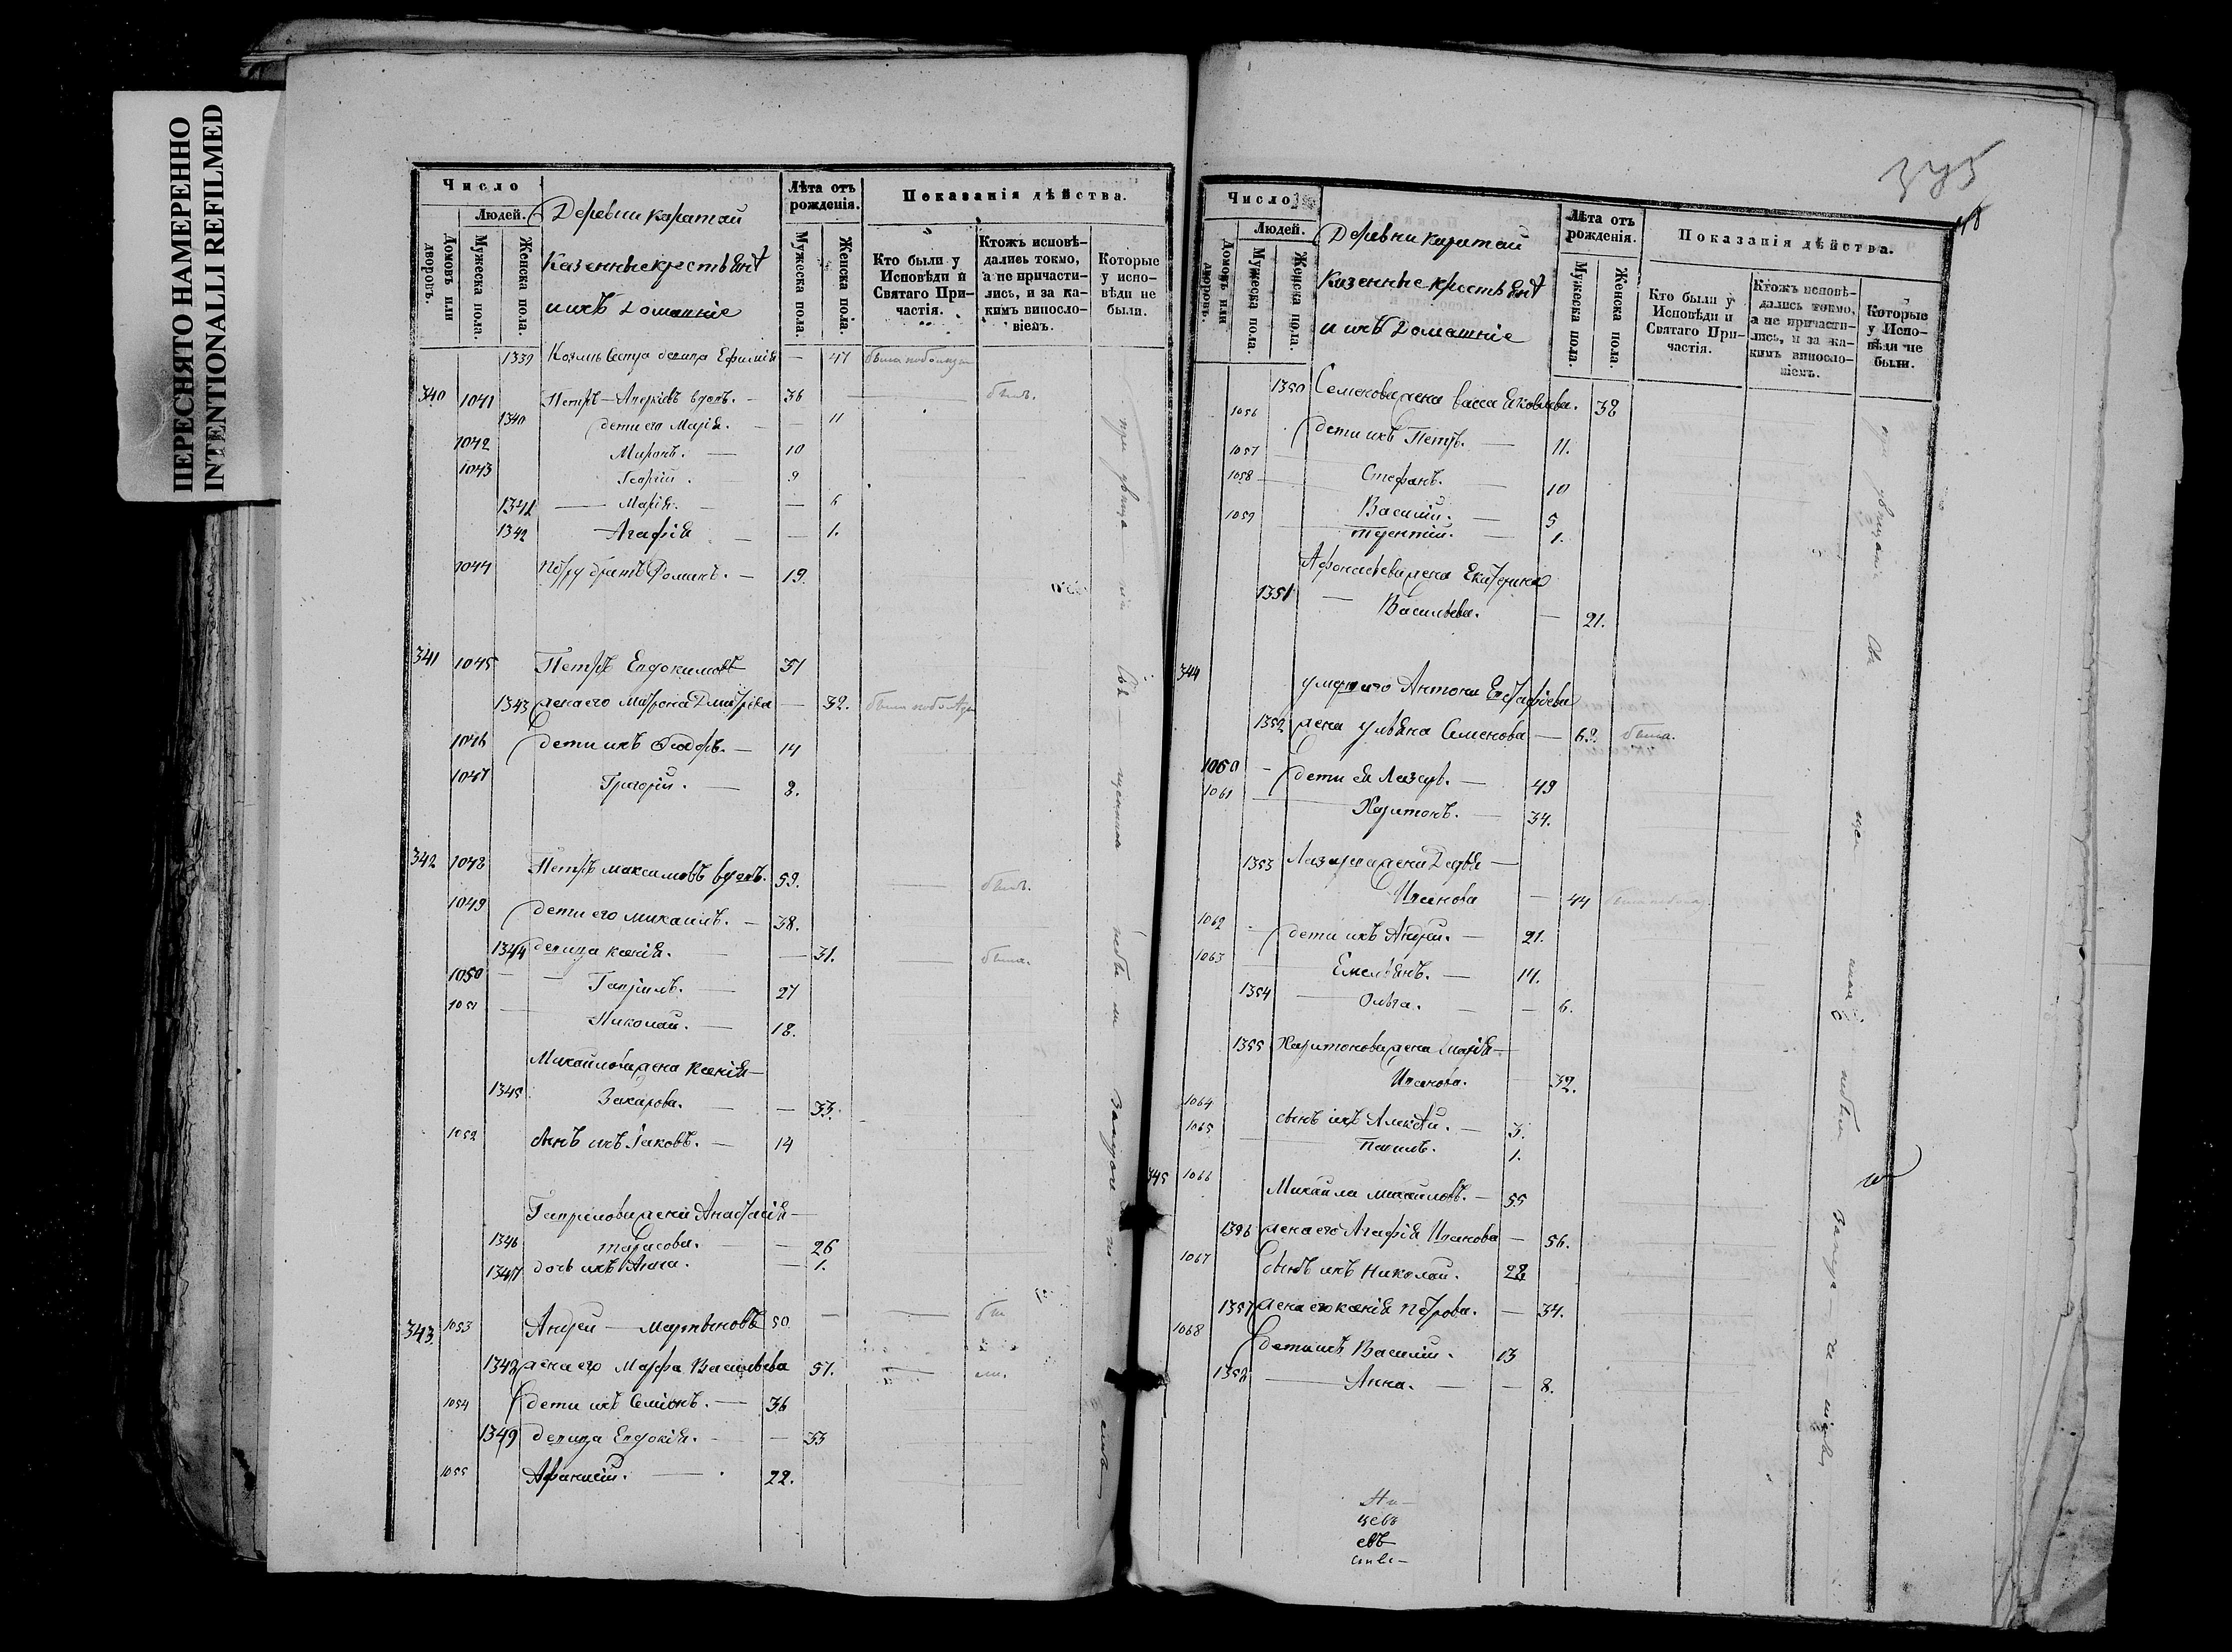 ПЕРЕСНЯТО НАМЕРЕННО
INTENTIONALLI REFILMED
Число
Людей.
Домовъ или дворовъ.
Мужеска пола.
Женска пола.
Деревни Каратай
Казенные крестьяне
и ихъ Домашніе
Лѣта отъ рожденія.
Мужеска пола.
Женска пола.
Показанія дѣйства.
Кто были у Исповѣди и Святаго Причастія.
Ктожъ исповѣдались токмо, а не причастились, и за какимъ винословіемъ.
Которые у исповѣди не были.
1339 сестра девица Ефимія — 47 была
340 1041 Петръ — вдовъ. — 36 былъ.
1340 дети его Марія. — 11
1042 Миронъ. — 10
1043 Георгій. 9
1341 — Марія. —
1342 Агафія — 1.
1044 Петру братъ Романъ. — 19.
341 1045 Петръ Евдокимовъ 37
1343 жена его Матрона Дмитріева — 32. была
1046 дети ихъ Ѳеодоръ. — 14
1047 Григорій. — 8.
342 1048 Петръ Максимовъ вдовъ. 59. былъ.
1049 дети его Михаилъ. — 38.
1344 девица Ксенія. — 31. была.
1050 — Гавріилъ. — 27
1051 — Николай. — 18.
Михайлова жена Ксенія —
1345 Захарова. — 33.
1052 сынъ ихъ Іаковъ. — 14
Гаврилова жена Анастасія —
1346 Тарасова. — 26
1347 дочь ихъ Анна. — 1.
343 1053 Андрей — Мартыновъ 50 —
1348 жена его Марфа Васильева 51.
1054 дети ихъ Семіонъ. — 36
1349 девица Евдокія. — 33
1055 Афанасій. — 22.
375
Число
Людей.
Домовъ или дворовъ.
Мужеска пола.
Женска пола.
Деревни Каратай
Казенные крестьяне
и ихъ Домашніе
Лѣта отъ рожденія.
Мужеска пола.
Женска пола.
Показанія дѣйства.
Кто были у Исповѣди и Святаго Причастія.
Ктожъ исповѣдались токмо, а не причастились, и за какимъ винословіемъ.
Которые у Исповѣди не были.
1350 Семенова жена Васса Яковлева. 38
1056 дети ихъ Петръ. — 11.
1057 Стефанъ. — 10
1058 Василій. — 5
1059 Терентій. — 1.
Афонасьева жена Екатерина
1351 — Васильева. — 21.
344 умершаго Антона Евстафіева
1352 жена Ульяна Семенова — 69. была.
1060 — дети ея Лазарь. — 49
1061 Харитонъ. — 34.
1353 Лазаря жена Дарья —
Иванова — 44
1062 — дети ихъ Андрей. — 21.
1063 Емельянъ. — 14.
1354 — Ольга. — 6.
1355 Харитонова жена Марія —
Иванова. — 32.
1064 сынъ ихъ Алексѣй. — 3.
1065 Павелъ. 1.
345 1066 Михаила Михайловъ. — 55
1396 жена его Агафія Иванова — 56.
1067 сынъ ихъ Николай. 28
1357 жена его Ксенія Петрова. — 34.
1068 дети ихъ Василій. 13
1358 — Анна. — 8.